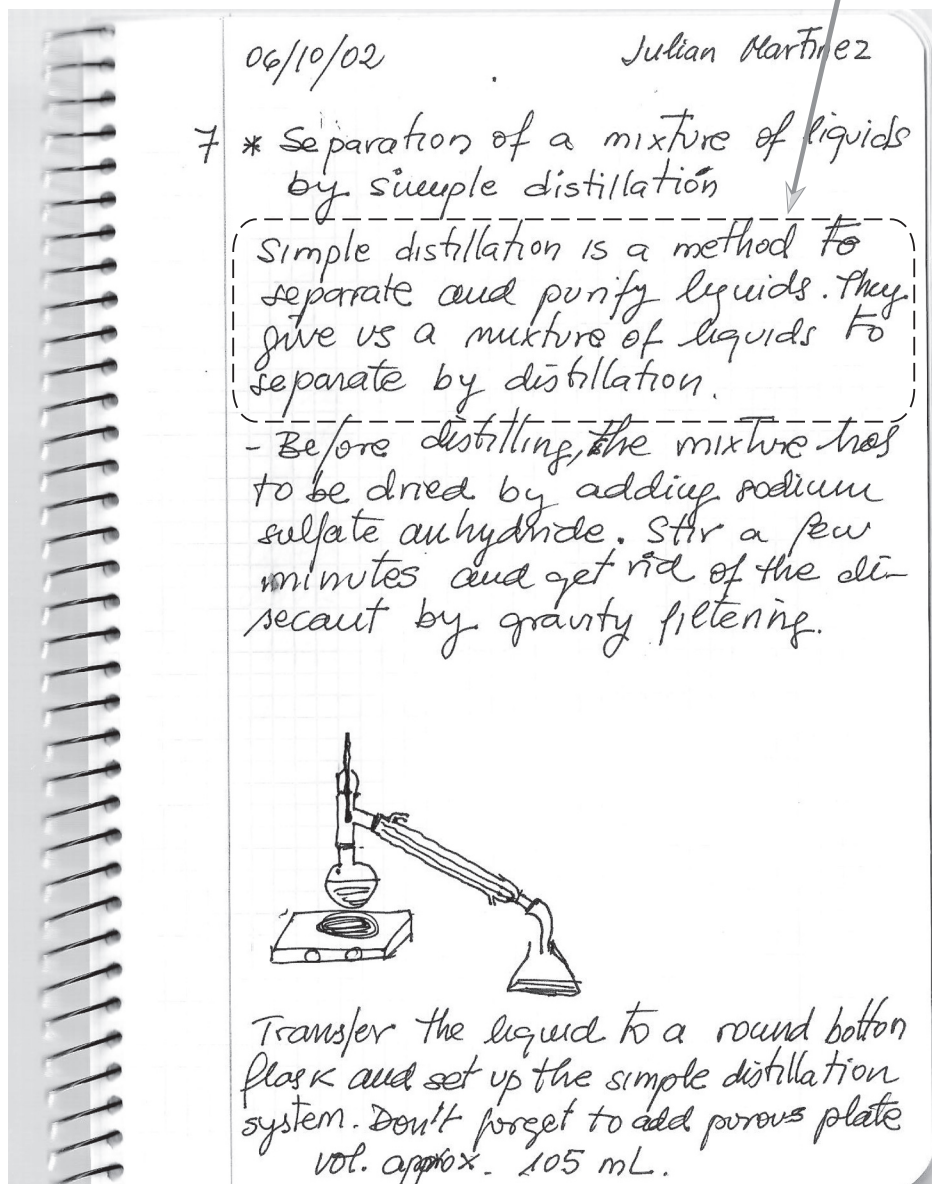 06/10/02 Julian Martinez
7 * Separation of a mixture of liquids
by simple distillation
Simple distillation is a method to
separate and purify liquids. They
give us a mixture of liquids to
separate by distillation.
- Before distilling, the mixture has
to be dried by adding sodium
sulfate anhydride. Stir a few
minutes and get rid of the di-
secant by gravity filtering.
Transfer the liquid to a round botton
flask and set up the simple distillation
system. Don't forget to add porous plate
vol. approx. 105 mL.